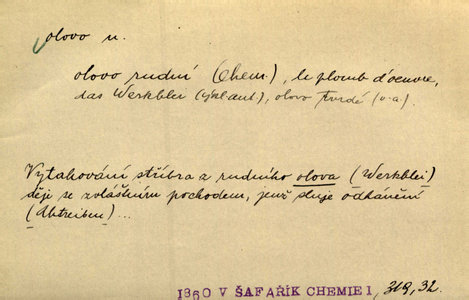 olovo n.
olovo rudní (Chem.), le plomb d'oeuvre,
das Werkblei (                ), olovo tvrdé (v.a.).
Vytahování stříbra z rudního olova (Werkblei)
děje se zvláštním pochodem, jenž sluje odhánění
(Abtreiben)...
1860 V ŠAFAŘÍK CHEMIE I, 318, 32.